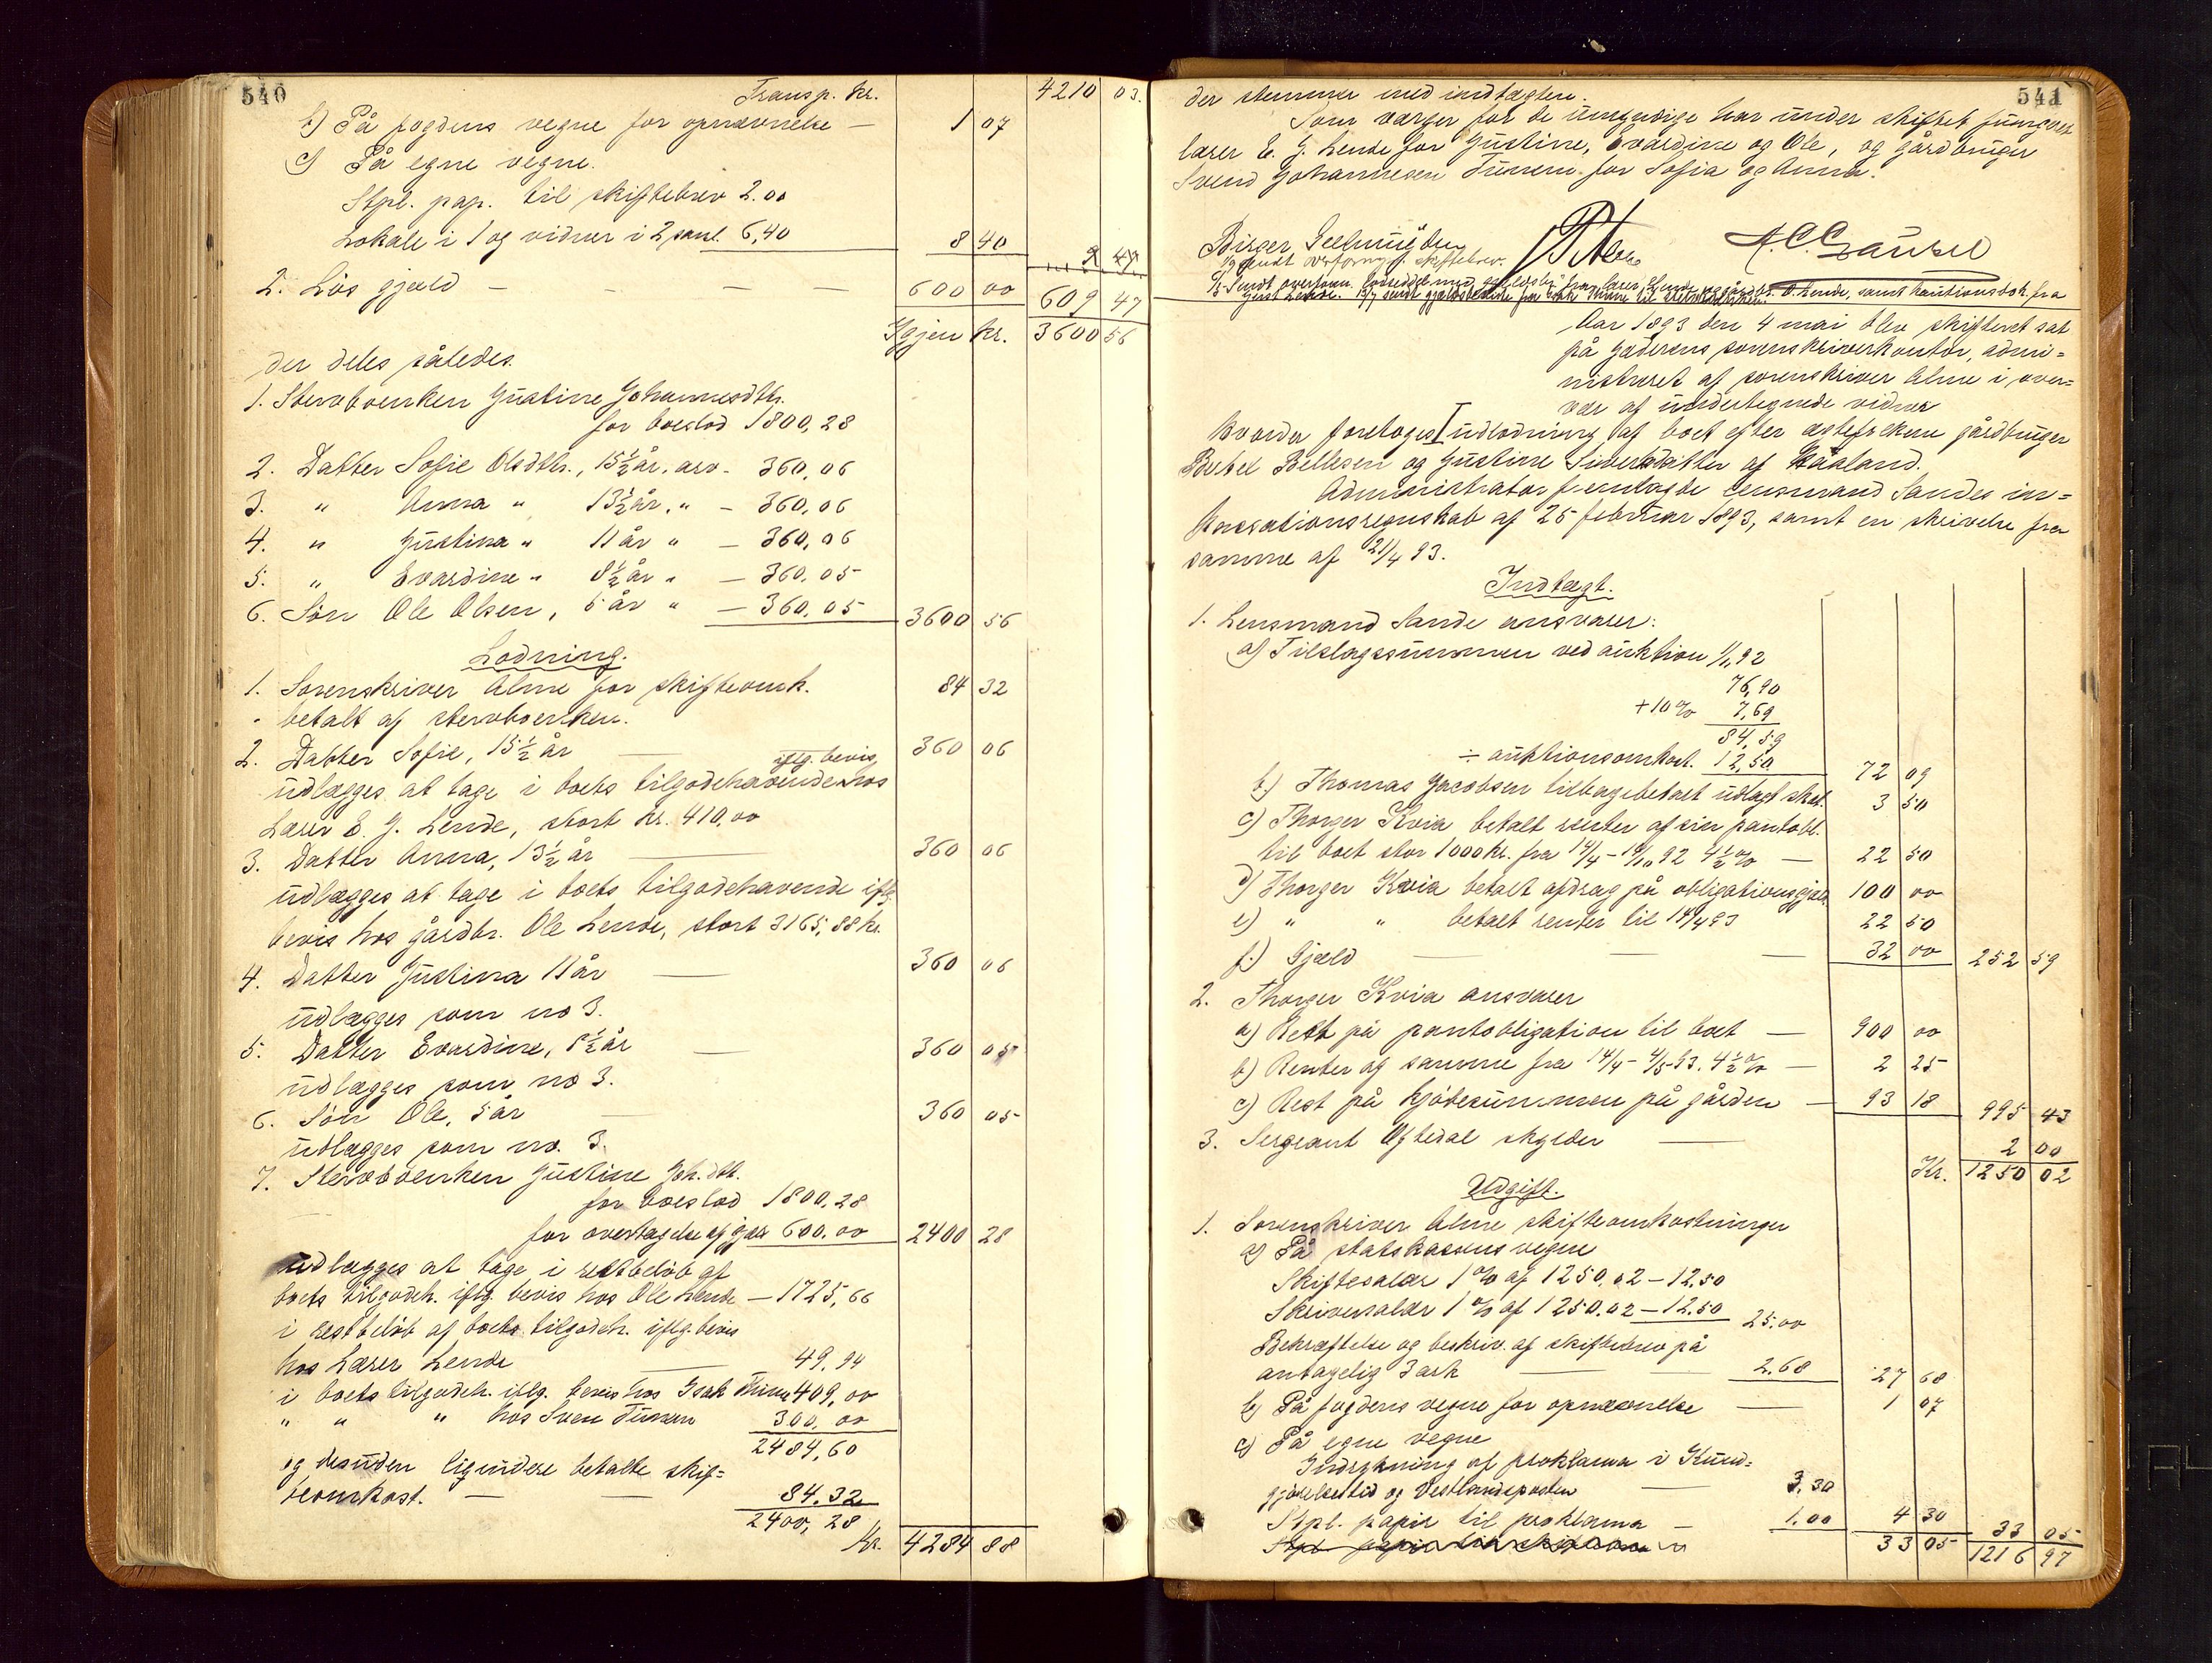 540
Transp. kr. 4210 03.
b) På fogdens vegne for opnævnelse — 1 07
c) På egne vegne.
Stpl. pap. til skiftebrev 2.00
Lokale i 1 og vidner i 2 saml. 6,40 8 40
9 47
2. Løs gjæld — — — — 600 00 609 47
Igjen kr. 3600 56
der deles således.
1. Stervboenken Gustine Johannesdtr.
for boeslod 1800,28
2. Datter Sofie Olsdtr., 15½ år, arv - 360,06
3. " Anna " 13½ år, " - 360,06
4. " Gustina " 11 år " — 360,06
5. " Evardine " 8½ år " — 360.05
6. Søn Ole Olsen, 5 år " — 360.05 3600 56
Lodning.
1. Sorenskriver Alme for skifteomk. 84 32
betalt af stervboenken.
2. Datter Sofie, 15½ år — 360 06
iflg. bevis
udlægges at tage i boets tilgodehavende hos
Lærer E. G. Lende, stort kr. 410,00
3. Datter Anna, 13½ år — 360 06
udlægges at tage i boets tilgodehavende iflg.
bevis hos gårdbr. Ole Lende, stort 3165,88 kr.
4. Datter Justina 11 år — 360 06
udlægges som no 3.
5. Datter Evardine, 8½ år — 360 05
udlægges som no 3.
6. Søn Ole, 5 år — 360 05
udlægges som no. 3.
7. Stervboenken Gustine Joh.dtr.
for boeslod 1800,28
for overtagelse af gjæld 600.00 2400 28
udlægges at tage i restbeløb af
boets tilgodeh. iflg. bevis hos Ole Lende — 1725,66
i restbeløb af boets tilgodeh. iflg. bevis
hos Lærer Lende — 49.94
i boets tilgodeh. iflg. bevis hos Isak Tunem 409,00
" " " hos Sven Tunem 300,00
2484,60
og desuden ligundere betalte skif=
teomkost. — — 84.32
2400,28
Kr. 4284 88
541
der stemmer med indtægten.
Som værger for de umyndige har under skiftet fungeret
lærer E. G. Lende for Gustine, Evardine og Ole, og gårdbruger
Svend Johannesen Tunem for Sofia og Anna.
Birger Geelmuyden A. C. Gausel
Aar 1893 den 4 mai blev skifteret sat
på Jæderens sorenskriverkontor, admi=
nistreret af sorenskriver Alme i over=
vær af undertegnede vidner
Hvorda foretoges udlodning af boet efter ægtefolkene gårdbruger
Bertel Bellesen og Gustine Siversdatter af Håaland.
Administrator fremlagde lensmand Sandes in=
kassationsregnskab af 25 februar 1893, samt en skrivelse fra
samme af 21/4 93.
Indtægt.
1. Lensmand Sande ansvarer:
a) Tilslagssummen ved auktion 1/11 92
76,90
+ 10 % 7,69
84,59
÷ auktionsomkost. 12,50 72 09
b) Thomas Jacobsen tilbagebetalt udlagt skat. 3 50
c) Thorger Kvia betalt renter af sin pantobl.
til boet stor 1000 kr. fra 14/4 - 14/10 92 4½ % — 22 50
d) Thorger Kvia betalt afdrag på obligationsgjæld 100 00
e) " " betalt renter til 14/4 93 22 50
f) Gjæld — — — 32 00 252 59
2. Thorger Kvia ansvarer
a) Rest på pantobligation til boet — 900 00
b) Renter af samme fra 14/4 - 4/5 93. 4½ % — 2 25
c) Rest på kjøbesummen på gården — 93 18 995 43
3. Sergeant Oftedal skylder — 2 00
Kr. 1250 02
Udgift.
1. Sorenskriver Alme skifteomkostninger
a) På statskassens vegne
Skiftesalær 1 % af 1250.02 — 12.50
Skriversalær 1 % af 1250.02 — 12.50 25.00
Bekræftelse og beskriv. af skiftebrev på
antagelig 3 ark — — 2.68 27 68
b) På fogdens vegne for opnævnelse — 1 07
c) På egne vegne
Indrykning af proklama i Kund=
gjørelsestid og Vestlandsposten — 3.30
Stpl. papir til proklama — 1.00 4 30 33 05
33 05 1216 97